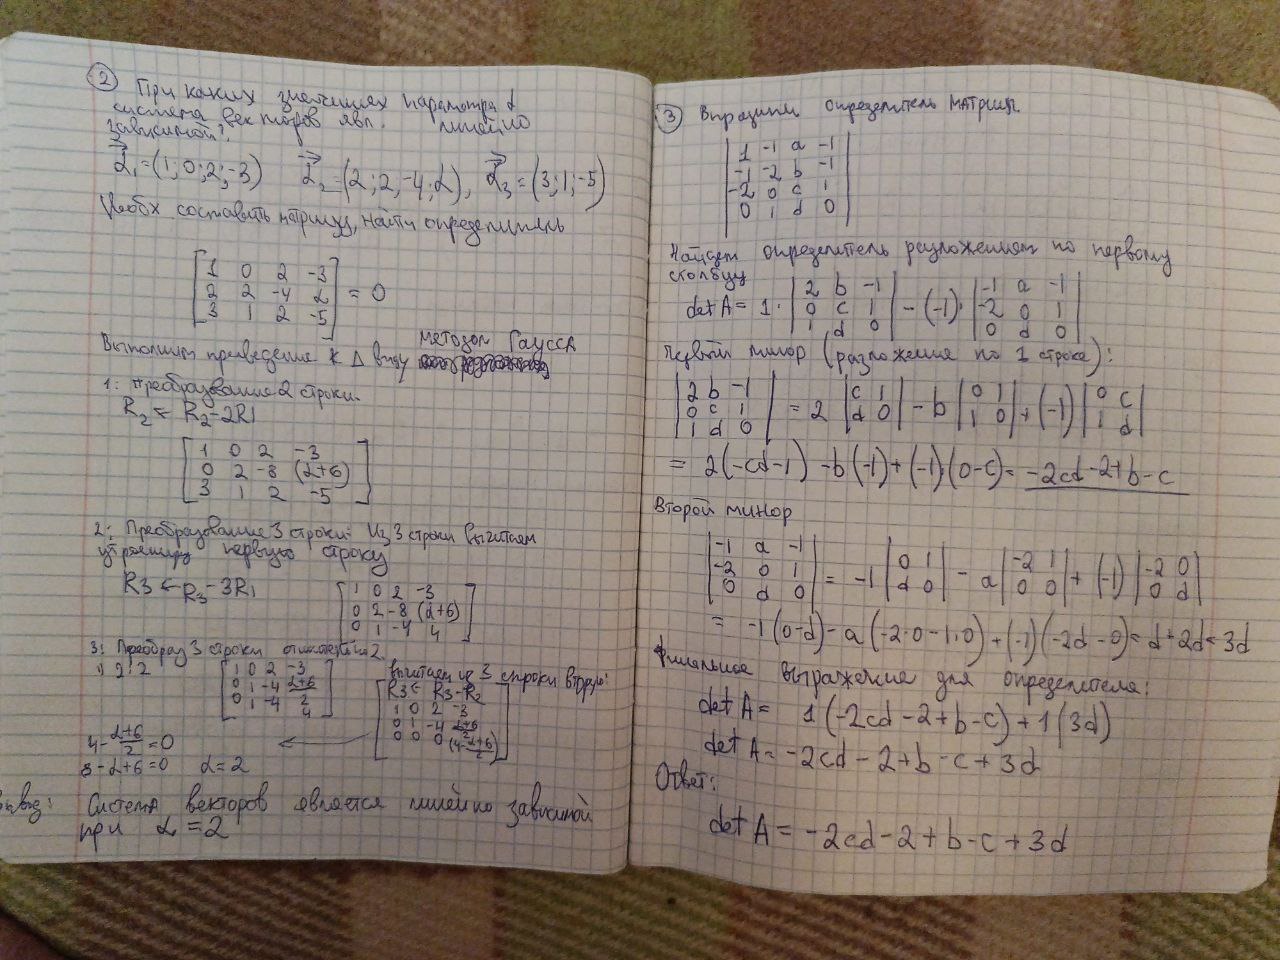 2 При каких значениях параметра α
система векторов явл. линейно
зависимой?
α₁=(1;0;2;-3) α₂=(2;2,-4;α), α₃=(3;1;-5)
Необх составить матрицу, найти определитель
[1 0 2 -3
2 2 -4 α
3 1 2 -5] = 0
методом Гаусса
Выполним приведение к Δ виду
1: Преобразование 2 строки.
R₂ ← R₂-2R1
[1 0 2 -3
0 2 -8 (α+6)
3 1 2 -5]
2: Преобразование 3 строки: Из 3 строки вычитаем
первую строку
R3 ← R₃-3R1
[1 0 2 -3
0 2 -8 (α+6)
0 1 -4 4]
3: Преобраз 3 строки 2
1) 2:2
[1 0 2 -3
0 1 -4 α+6/2
0 1 -4 4]
вычитаем из 3 строки вторую:
R3 ← R₃-R₂
[1 0 2 -3
0 1 -4 α+6/2
0 0 0 (4-α+6/2)]
4-α+6/2=0
8-α+6=0 α=2
Вывод: Система векторов является линейно зависимой
при α=2
3 определитель матрицы.
|1 -1 a -1
-1 -2 b -1
-2 0 c 1
0 1 d 0|
Найдем определитель разложением по первому
столбцу
det A = 1·|2 b -1
0 c 1
1 d 0| - (-1)·|-1 a -1
-2 0 1
0 d 0|
Первый минор (разложение по 1 строке):
|2 b -1
0 c 1
1 d 0| = 2 |c 1
d 0| - b |0 1
1 0| + (-1) |0 c
1 d|
= 2(-cd-1) -b(-1)+(-1)(0-c)= -2cd-2+b-c
Второй минор
|-1 a -1
-2 0 1
0 d 0| = -1 |0 1
d 0| - a |-2 1
0 0| + (-1) |-2 0
0 d|
= -1(0-d)-a(-2·0-1·0)+(-1)(-2d-0)= d+2d=3d
Финальное выражение для определителя:
det A = 1(-2cd-2+b-c)+1(3d)
det A = -2cd-2+b-c+3d
Ответ:
det A = -2cd-2+b-c+3d